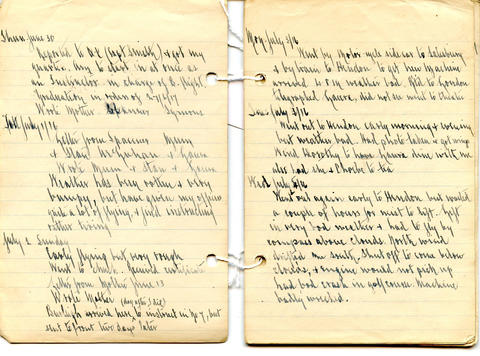 Thurs June 30
Reported to O.C. (Capt Smith) & got my
quarters. Am to start in at once as
an Instructor in charge of C. flight.
Graduating in orders of
Wrote Mother
Sat July 1/16
Letter from
& Stan
Wrote & Stan &
Weather has been rotten & very
bumpy, but have given my officers
quite a lot of flying & find instructing
rather tiring
July 2 Sunday
Early flying but very rough
Went to church. certificate
Letter from Mother June 13
Wrote Mother (day after I did)
arrived here to instruct in No 7, but
sent to front two days later
Mon July 3/16
Went by Motor cycle side car to Salisbury
& by train to Hendon to get new machine
arrived 4 P.M. weather bad. Slept to London
telegraphed Laura, did not go to theatre
Tues July 4/16
Went out to Hendon early morning & evening
but weather bad. Had photo taken & got wings
Wired Dorothy to have Laura dine with me
also had she & Phoebe to tea
Wed July 5/16
Went out again early to Hendon but waited
a couple of hours for mist to lift. Left
in very bad weather & had to fly by
compass above clouds. North wind
drifted me south, shut off to come below
clouds, & engine would not pick up
had bad crash in golf course. Machine
badly wrecked.